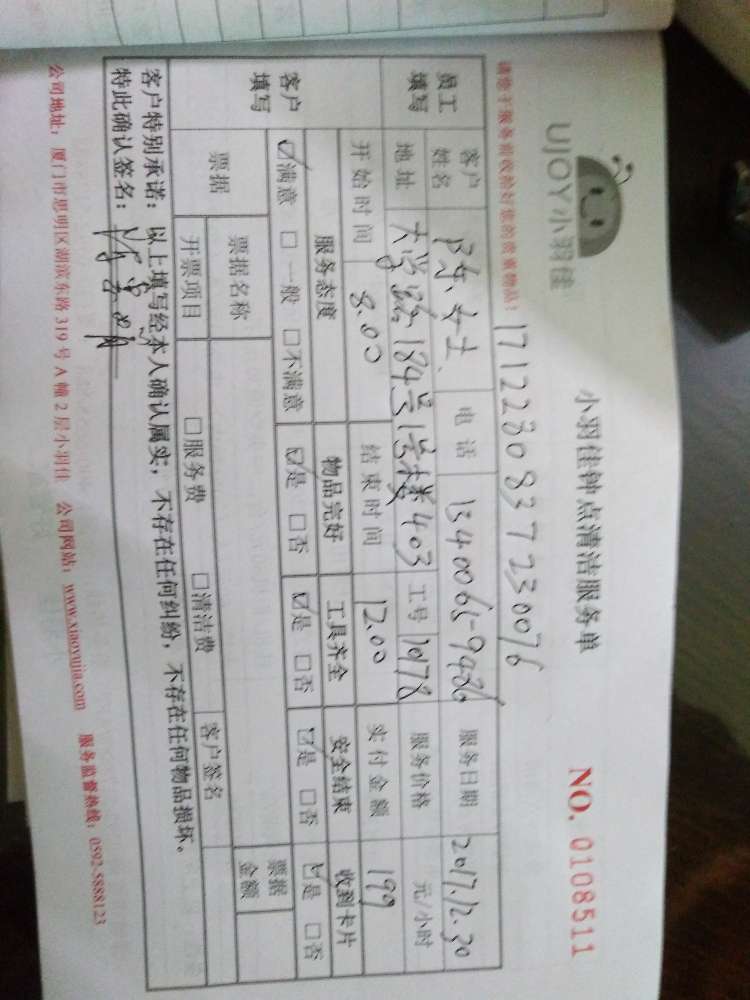 UJOY小羽佳
小羽佳钟点清洁服务单
NO. 0108511
请您于服务前收拾好您的贵重物品!
1712280837230076
员工填写 客户姓名 陈女士 电话 服务日期 2017.12.30
地址 大学路184号 403 工号 10178 服务价格 元/小时
开始时间 8.00 结束时间 12.00 实付金额 199
客户填写 服务态度 物品完好 工具齐全 安全结束 收到卡片
☑满意 □一般 □不满意 ☑是 □否 ☑是 □否 ☑是 □否 ☑是 □否
票据 票据名称 票据金额
开票项目 □服务费 □清洁费 客户签名
客户特别承诺:以上填写经本人确认属实,不存在任何纠纷,不存在任何物品损坏。
特此确认签名:
公司地址:厦门市思明区湖滨东路319号A幢2层小羽佳 公司网站:www.xiaoyujia.com 服务监督热线:0592-5888123